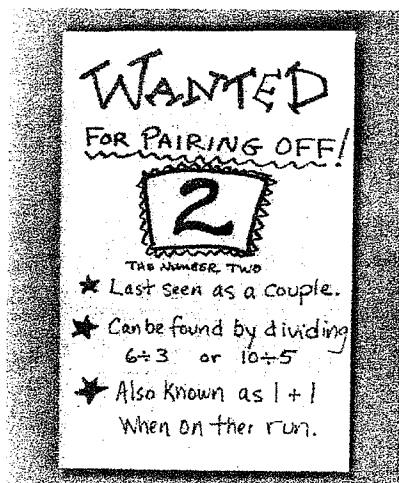 WANTED
FOR PAIRING OFF!
2
THE NUMBER TWO
★ Last seen as a couple.
★ Can be found by dividing
6÷3 or 10÷5
★ Also Known as 1 + 1
When on ther run.